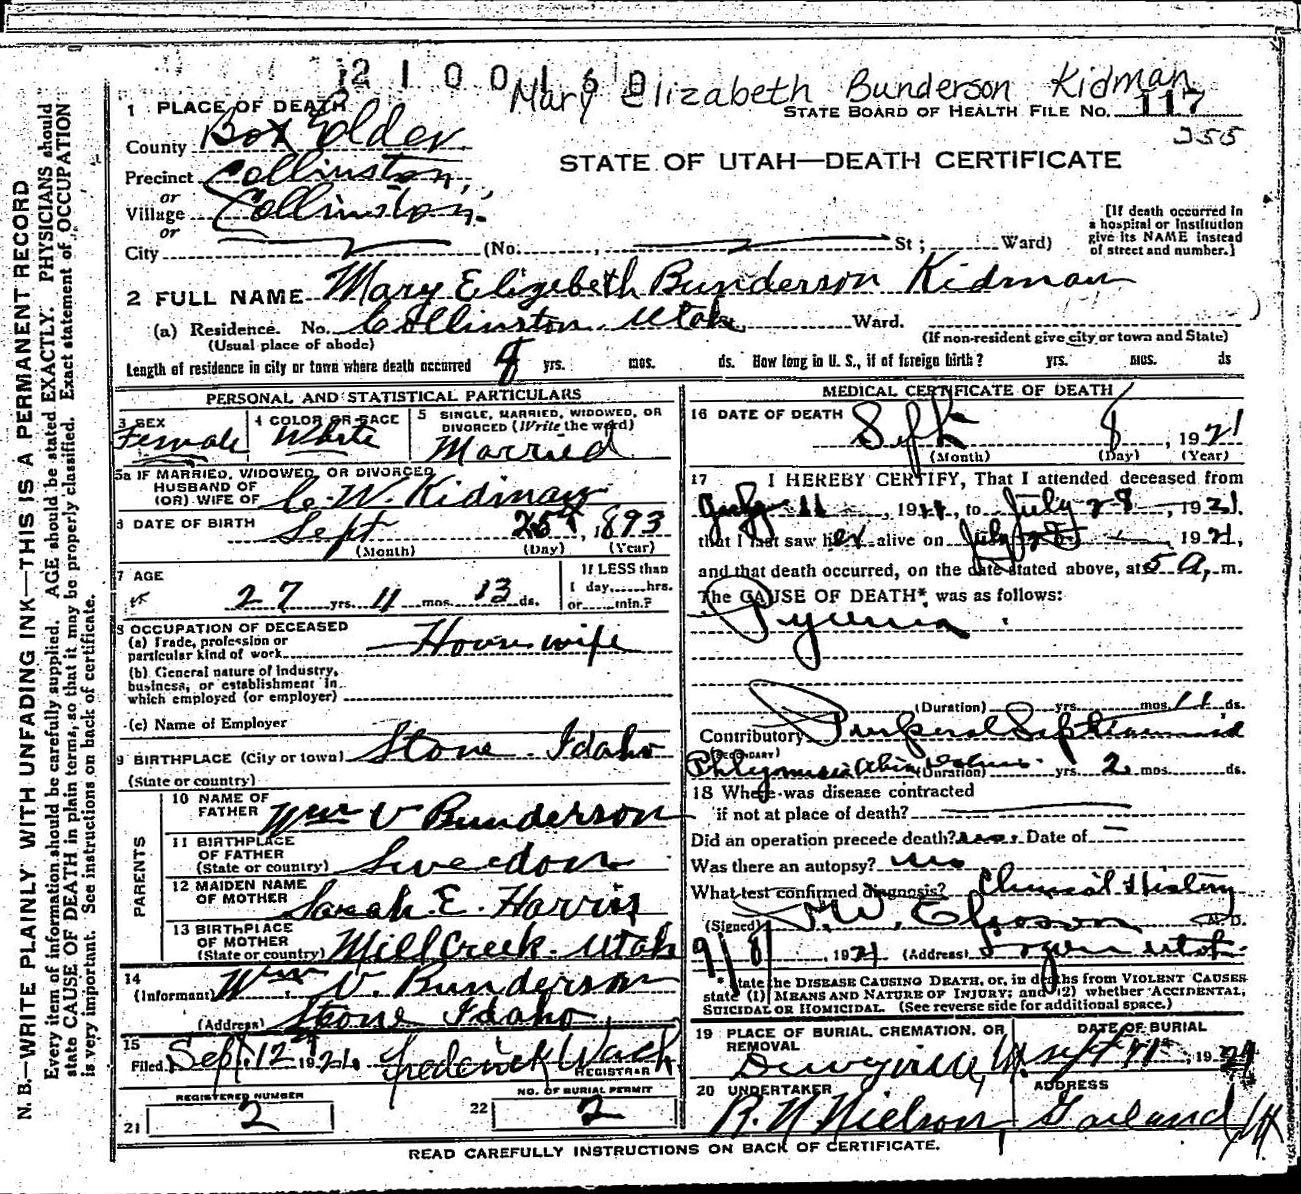 2100160
Mary Elizabeth Bunderson Kidman
STATE BOARD OF HEALTH FILE NO. 117
255
STATE OF UTAH—DEATH CERTIFICATE
1 PLACE OF DEATH
County Box Elder
Precinct Collinston,
or
Village Collinston.
or
City (No. St; Ward)
[If death occurred in a hospital or institution give its NAME instead of street and number.]
2 FULL NAME Mary Elizebeth Bunderson Kidman
(a) Residence. No. Collinston Utah Ward.
(Usual place of abode) (If non-resident give city or town and State)
Length of residence in city or town where death occurred 8 yrs. mos. ds. How long in U. S., if of foreign birth? yrs. mos. ds
PERSONAL AND STATISTICAL PARTICULARS
3 SEX Female
4 COLOR OR RACE White
5 SINGLE, MARRIED, WIDOWED, OR DIVORCED (Write the word) Married
5a IF MARRIED, WIDOWED, OR DIVORCED
HUSBAND OF
(OR) WIFE OF C. W. Kidman
6 DATE OF BIRTH Sept 25th, 1893
(Month) (Day) (Year)
7 AGE
27 yrs. 11 mos. 13 ds.
If LESS than
1 day, hrs.
or min.?
8 OCCUPATION OF DECEASED
(a) Trade, profession or
particular kind of work Housewife
(b) General nature of industry,
business, or establishment in
which employed (or employer)
(c) Name of Employer
9 BIRTHPLACE (City or town) Stone Idaho
(State or country)
PARENTS
10 NAME OF
FATHER Wm V Bunderson
11 BIRTHPLACE
OF FATHER
(State or country) Sweedon
12 MAIDEN NAME
OF MOTHER Sarah. E. Harris
13 BIRTHPLACE
OF MOTHER
(State or country) Mill Creek. Utah
14
(Informant) Wm V. Bunderson
(Address) Stone Idaho
15
Filed Sept. 12th 1921 Frederick Wach
REGISTRAR
REGISTERED NUMBER
21 2
NO. OF BURIAL PERMIT
22 2
MEDICAL CERTIFICATE OF DEATH
16 DATE OF DEATH
Sept 8, 1921
(Month) (Day) (Year)
17 I HEREBY CERTIFY, That I attended deceased from
July 11, 1921, to July 28, 1921,
that I last saw her alive on July 28 1921,
and that death occurred, on the date stated above, at 5 A, m.
The CAUSE OF DEATH* was as follows:
Pyemia
(Duration) yrs. mos. 11 ds.
Contributory Puerperal Septicaemia
(SECONDARY)
Phlegmasia Alba Dolens. (Duration) yrs. 2 mos. ds.
18 Where was disease contracted
if not at place of death?
Did an operation precede death? Date of
Was there an autopsy? no
What test confirmed diagnosis? Clinical History
(Signed) M.D.
9/8/, 1921 (Address) Utah.
* State the DISEASE CAUSING DEATH, or, in deaths from VIOLENT CAUSES
state (1) MEANS AND NATURE OF INJURY; and (2) whether ACCIDENTAL,
SUICIDAL OR HOMICIDAL. (See reverse side for additional space.)
19 PLACE OF BURIAL, CREMATION, OR REMOVAL
Deweyville, Ut.
DATE OF BURIAL
Sept 11th, 1921
20 UNDERTAKER
R. N. Nielson,
ADDRESS
Garland Ut
READ CAREFULLY INSTRUCTIONS ON BACK OF CERTIFICATE.
N. B.—WRITE PLAINLY WITH UNFADING INK—THIS IS A PERMANENT RECORD
Every item of information should be carefully supplied. AGE should be stated EXACTLY. PHYSICIANS should
state CAUSE OF DEATH in plain terms, so that it may be properly classified. Exact statement of OCCUPATION
is very important. See instructions on back of certificate.